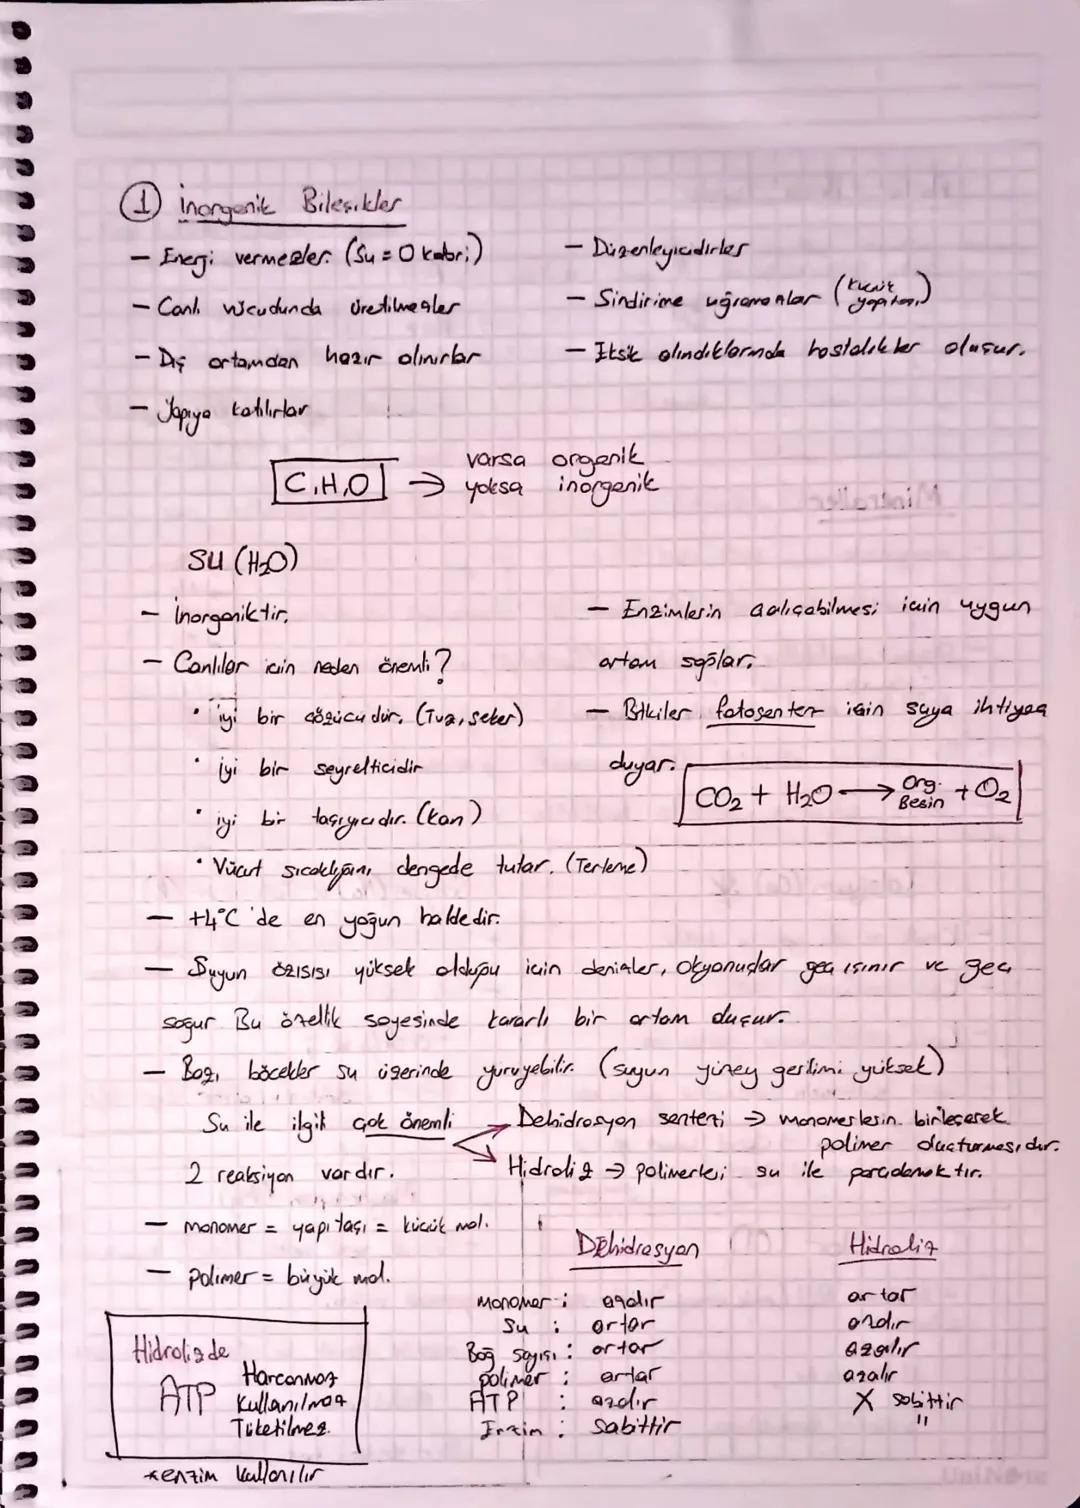 ① İnorganik Bileşikler
– Enerji vermezler. (Su = 0 kalori)
– Canlı vücudunda üretilmezler
– Dış ortamdan hazır alınırlar
– Yapıya katılırlar
– Düzenleyicidirler
– Sindirime uğramazlar (küçük yapıtaşı)
– Eksik alındıklarında hastalıklar oluşur.
C,H,O → varsa organik
yoksa inorganik
SU (H₂O)
– İnorganiktir.
– Canlılar için neden önemli?
• iyi bir çözücüdür. (Tuz, şeker)
• iyi bir seyrelticidir
• iyi bir taşıyıcıdır. (kan)
• Vücut sıcaklığını dengede tutar. (Terleme)
– Enzimlerin çalışabilmesi için uygun
ortam sağlar.
– Bitkiler fotosentez için suya ihtiyaç
duyar.
CO₂ + H₂O → Org. Besin + O₂
– +4°C'de en yoğun haldedir.
– Suyun özısısı yüksek olduğu için denizler, Okyanuslar geç ısınır ve geç
soğur Bu özellik sayesinde kararlı bir ortam oluşur.
– Bazı böcekler su üzerinde yürüyebilir. (suyun yüzey gerilimi yüksek)
Su ile ilgili çok önemli
2 reaksiyon vardır.
Dehidrasyon sentezi → monomerlerin birleşerek
polimer oluşturmasıdır.
Hidroliz → polimerleri su ile parçalamaktır.
– monomer = yapıtaşı = küçük mol.
– polimer = büyük mol.
Dehidrasyon Hidroliz
monomer : azalır artar
Su : artar azalır
Bağ sayısı : artar azalır
polimer : artar azalır
ATP : azalır X sabittir
Enzim : sabittir "
Hidrolizde
ATP Harcanmaz
Kullanılmaz
Tüketilmez.
*enzim kullanılır
UniNote